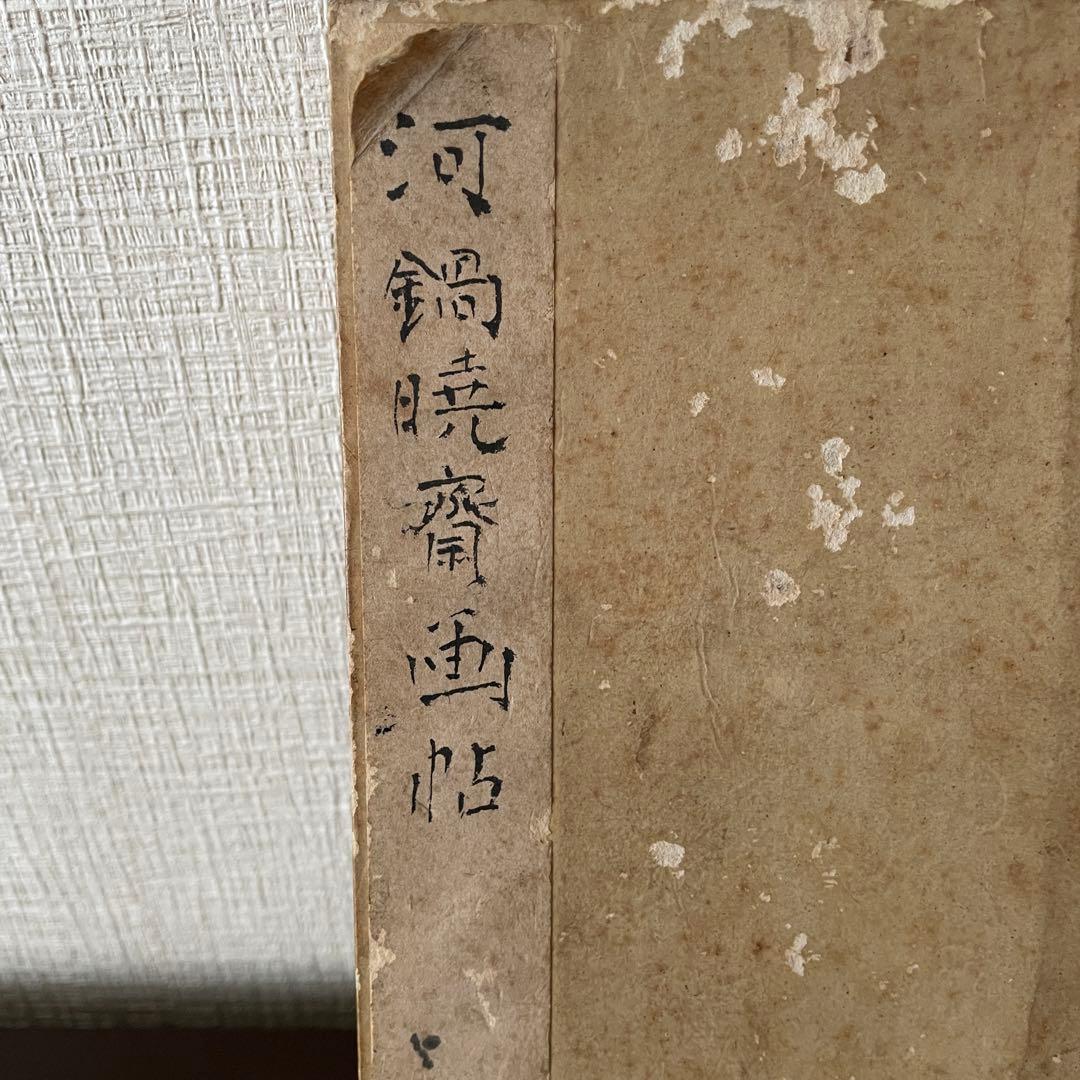 河鍋暁齋画帖